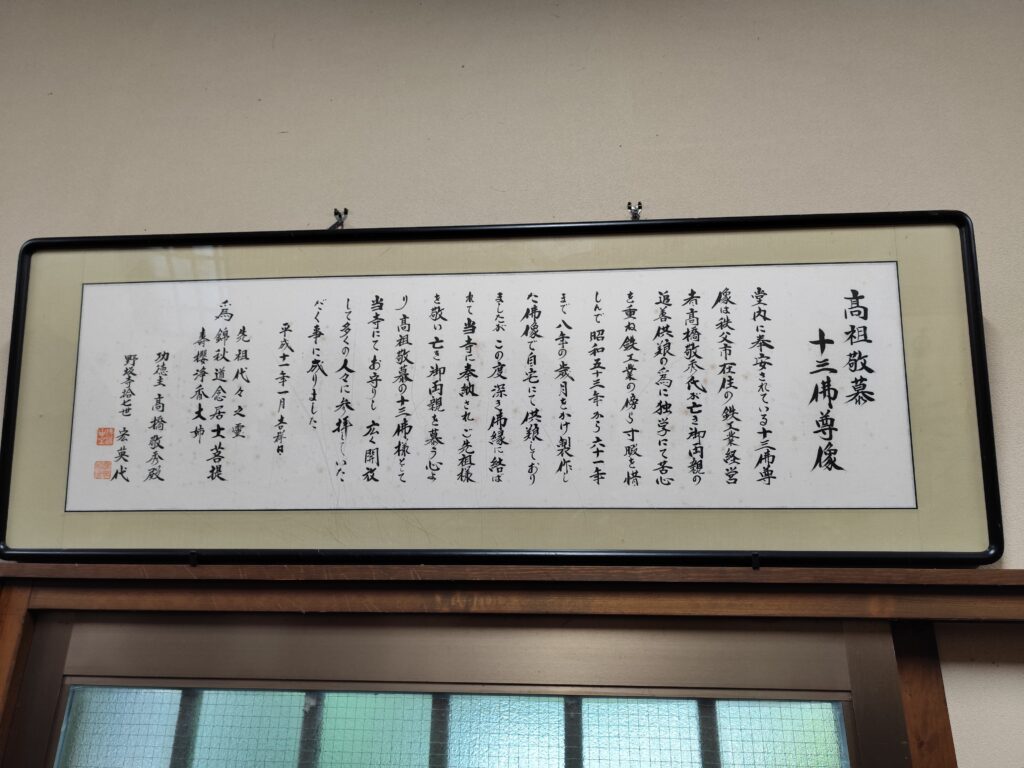 高祖敬慕
十三佛尊像
堂内に奉安されている十三佛尊
像は秩父市在住の鉄工業経営
者高橋敬泰氏が亡き御両親の
追善供養の為に独学にて苦心
を重ね鉄工業の傍ら寸暇を惜
しんで昭和五十三年から六十一年
まで八年の歳月をかけ製作し
た佛像で自宅にて供養しており
ましたがこの度深き佛縁に結ば
れて当寺に奉納されご先祖様
を敬い亡き御両親を慕う心よ
り高祖敬慕の十三佛様として
当寺にてお守りし広く開放
して多くの人々に参拝していた
だく事に成りました
平成十一年一月吉祥日
先祖代々之霊
為錦秋道念居士菩提
春櫻浄香大姉
功徳主高橋敬泰殿
野坂寺拾七世宏英代